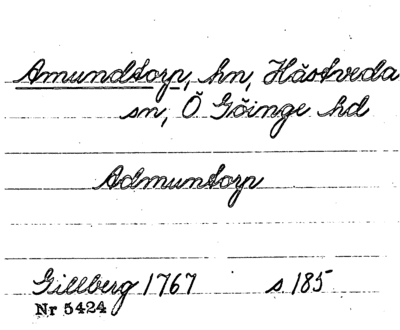 Amundtorp, hn, Hästveda
sn, Ö Göinge hd
Admuntorp
Gillberg 1767 s 185
Nr 5424